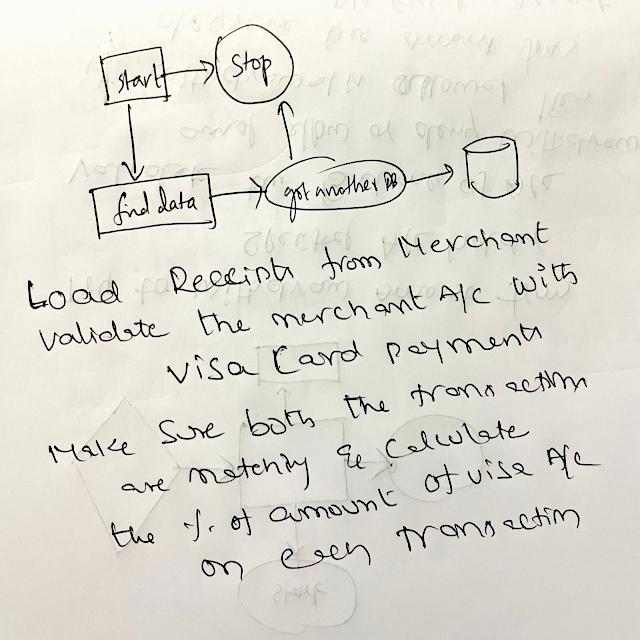 start
Stop
find data
got another DB
Load Receipts from Merchant
validate the merchant A/c with
visa Card payments
Make sure both the transaction
are matching & calculate
the % of amount of visa A/c
on each transaction